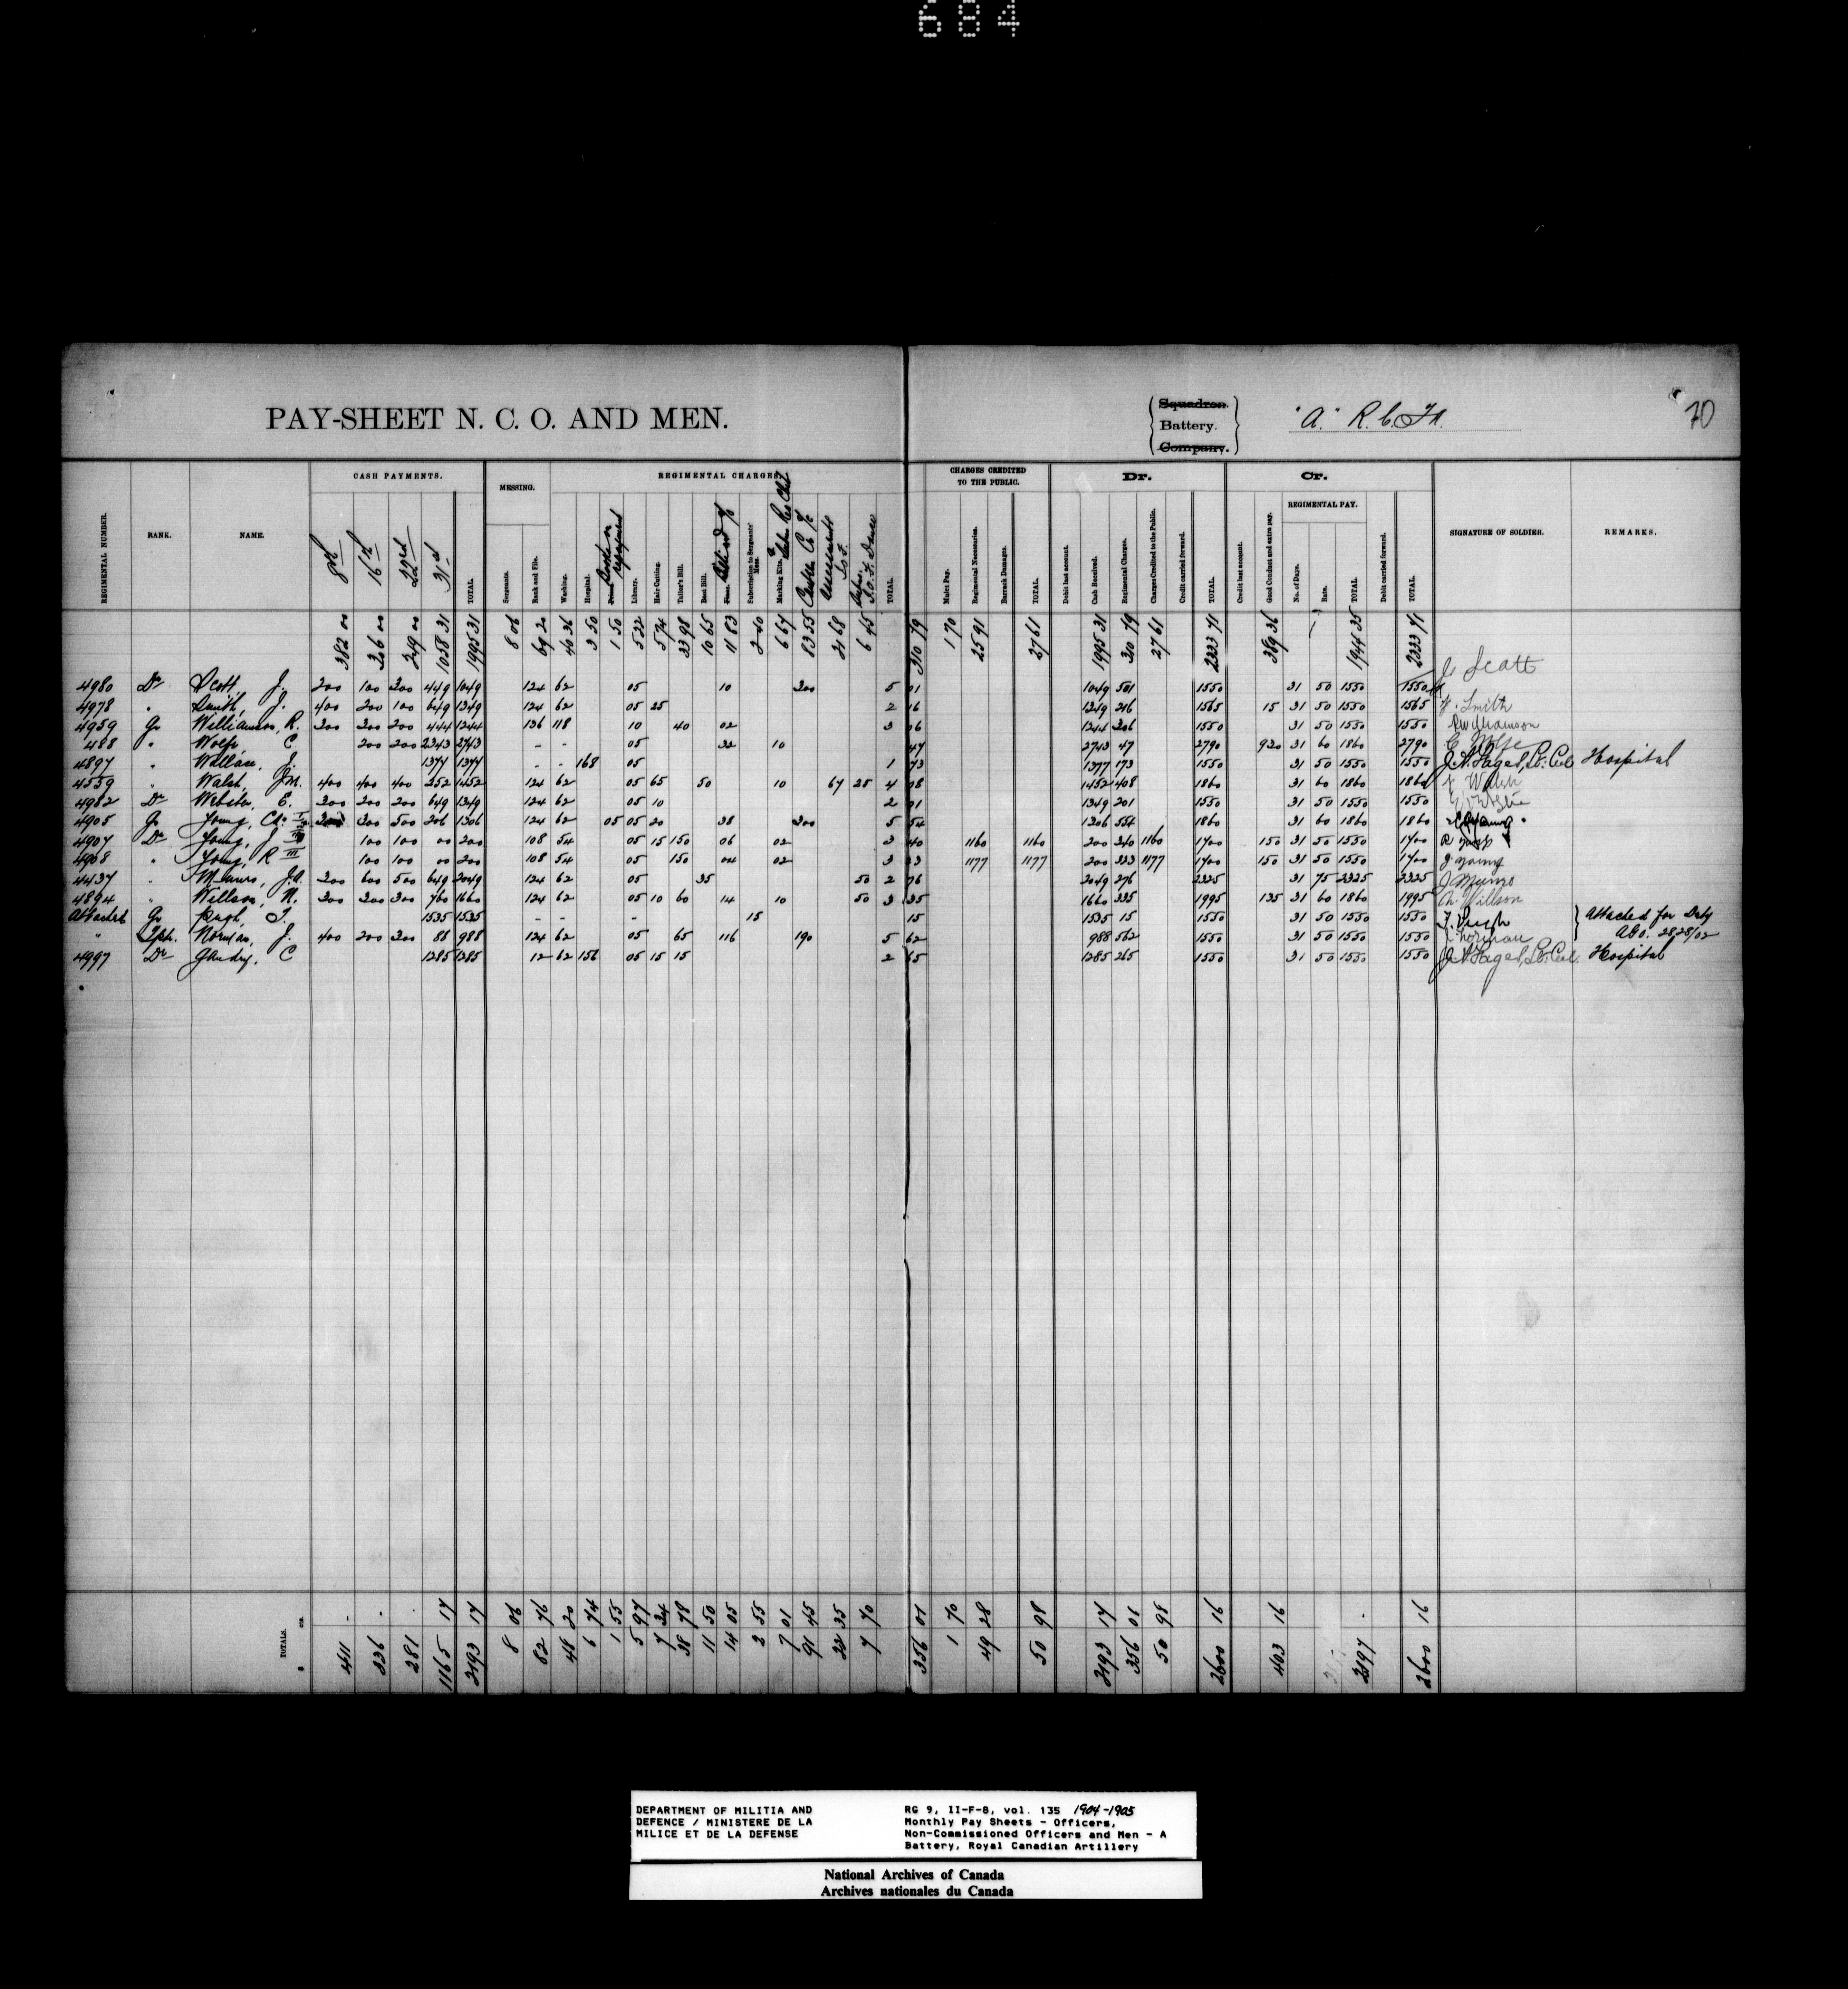 684
PAY-SHEET N. C. O. AND MEN.
Squadron.
Battery.
Company.
"A" R.C.F.A.
70
REGIMENTAL NUMBER. RANK. NAME. CASH PAYMENTS. MESSING. REGIMENTAL CHARGES. CHARGES CREDITED TO THE PUBLIC. Dr. Cr. SIGNATURE OF SOLDIER. REMARKS.
REGIMENTAL PAY.
8th 16th 22nd 31st TOTAL. Sergeants. Rank and File. Washing. Hospital. Library. Hair Cutting. Tailor's Bill. Boot Bill. Subscription to Sergeants' Mess. Marking Kits. TOTAL. Mulct Pay. Regimental Necessaries. Barrack Damages. TOTAL. Debit last account. Cash Received. Regimental Charges. Charges Credited to the Public. Credit carried forward. TOTAL. Credit last account. Good Conduct and extra pay. No. of Days. Rate. TOTAL. Debit carried forward. TOTAL.
382 00 306 00 249 00 1058 31 1995 31 8 06 69 20 40 36 3 50 1 50 5 22 5 74 33 98 10 65 11 83 2 40 6 67 83 55 21 68 6 45 310 79 1 70 25 91 27 61 1995 31 310 79 27 61 2333 71 389 36 1944 35 2333 71
4980 Dr Scott, J. 200 100 300 449 1049 124 62 05 10 300 5 01 1049 501 1550 31 50 1550 1550 J. Scott
4978 " Smith, J. 400 200 100 649 1349 124 62 05 25 2 16 1349 216 1565 15 31 50 1550 1565 J. Smith
4959 Gr Williamson, R. 300 300 200 444 1244 136 118 10 40 02 3 06 1244 306 1550 31 50 1550 1550 R Williamson
488 " Wolfe, C 200 200 2343 2743 - - 05 32 10 47 2743 47 2790 930 31 60 1860 2790 C Wolfe
4897 " Wallace, J. 1377 1377 - - 168 05 1 73 1377 173 1550 31 50 1550 1550 Hospital
4539 " Walsh, J.M. 400 400 400 252 1452 124 62 05 65 50 10 67 25 4 08 1452 408 1860 31 60 1860 1860 J Walsh
4982 Dr Webster, E. 300 200 200 649 1349 124 62 05 10 2 01 1349 201 1550 31 50 1550 1550
4905 Gr Young, Ch: I 300 300 500 206 1306 124 62 05 05 20 38 300 5 54 1306 554 1860 31 60 1860 1860
4907 Dr Young, J 100 100 00 200 108 54 05 15 150 06 02 3 40 1160 1160 200 340 1160 1700 150 31 50 1550 1700
4908 " Young, R III 100 100 00 200 108 54 05 150 04 02 3 23 1177 1177 200 323 1177 1700 150 31 50 1550 1700 J Young
4437 " Munro, J.A. 300 600 500 649 2049 124 62 05 35 50 2 76 2049 276 2325 31 75 2325 2325 J Munro
4894 " Willson, N. 300 300 300 760 1660 124 62 05 10 60 14 10 50 3 35 1660 335 1995 135 31 60 1860 1995 Willson
Attached Gr Pugh, T. 1535 1535 - - - 15 15 1535 15 1550 31 50 1550 1550 T. Pugh Attached for Duty
" Norman, J. 400 200 300 88 988 124 62 05 65 116 190 5 62 988 562 1550 31 50 1550 1550 J Norman 2828/02
4997 Dr Gaudry, C 1285 1285 12 62 156 05 15 15 2 65 1285 265 1550 31 50 1550 1550 Hospital
TOTALS. $ cts. 411 - 336 - 281 - 1165 17 2193 17 8 06 82 76 48 20 6 74 1 55 5 97 7 34 38 78 11 50 14 05 2 55 7 01 91 45 22 35 7 70 356 01 1 70 49 28 50 98 2193 17 356 01 50 98 2600 16 403 16 2197 - 2600 16
DEPARTMENT OF MILITIA AND
DEFENCE / MINISTERE DE LA
MILICE ET DE LA DEFENSE
RG 9, II-F-8, vol. 135 1904-1905
Monthly Pay Sheets - Officers,
Non-Commissioned Officers and Men - A
Battery, Royal Canadian Artillery
National Archives of Canada
Archives nationales du Canada